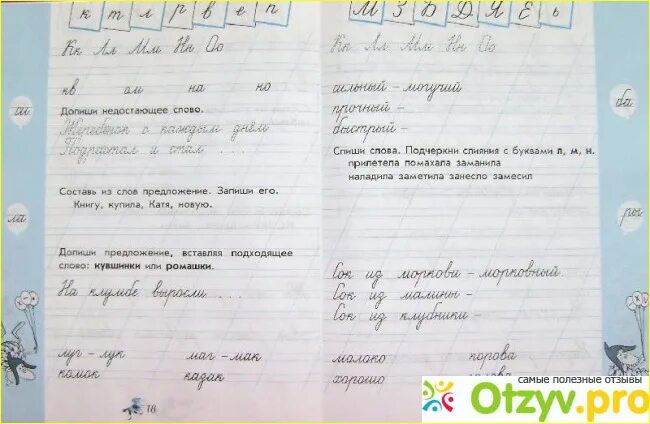 к т л р в е п
Кк Лл Мм Нн Оо
кв ом на но
Допиши недостающее слово.
Жеребёнок с каждым днём
Подрастал и стал . . .
Составь из слов предложение. Запиши его.
Книгу, купила, Катя, новую.
Допиши предложение, вставляя подходящее
слово: кувшинки или ромашки.
На клумбе выросли . . .
луг – лук маг – мак
комок казак
18
ла
М З Ь Д Я Ё Ь
Кк Лл Мм Нн Оо
сильный – могучий
прочный –
быстрый –
Спиши слова. Подчеркни слияния с буквами л, м, н.
прилетела помахала заманила
наладила заметила занесло замесил
Сок из моркови – морковный.
Сок из малины –
Сок из клубники –
молоко корова
хорошо
ба
ры
самые полезные отзывы
Otzyv.pro